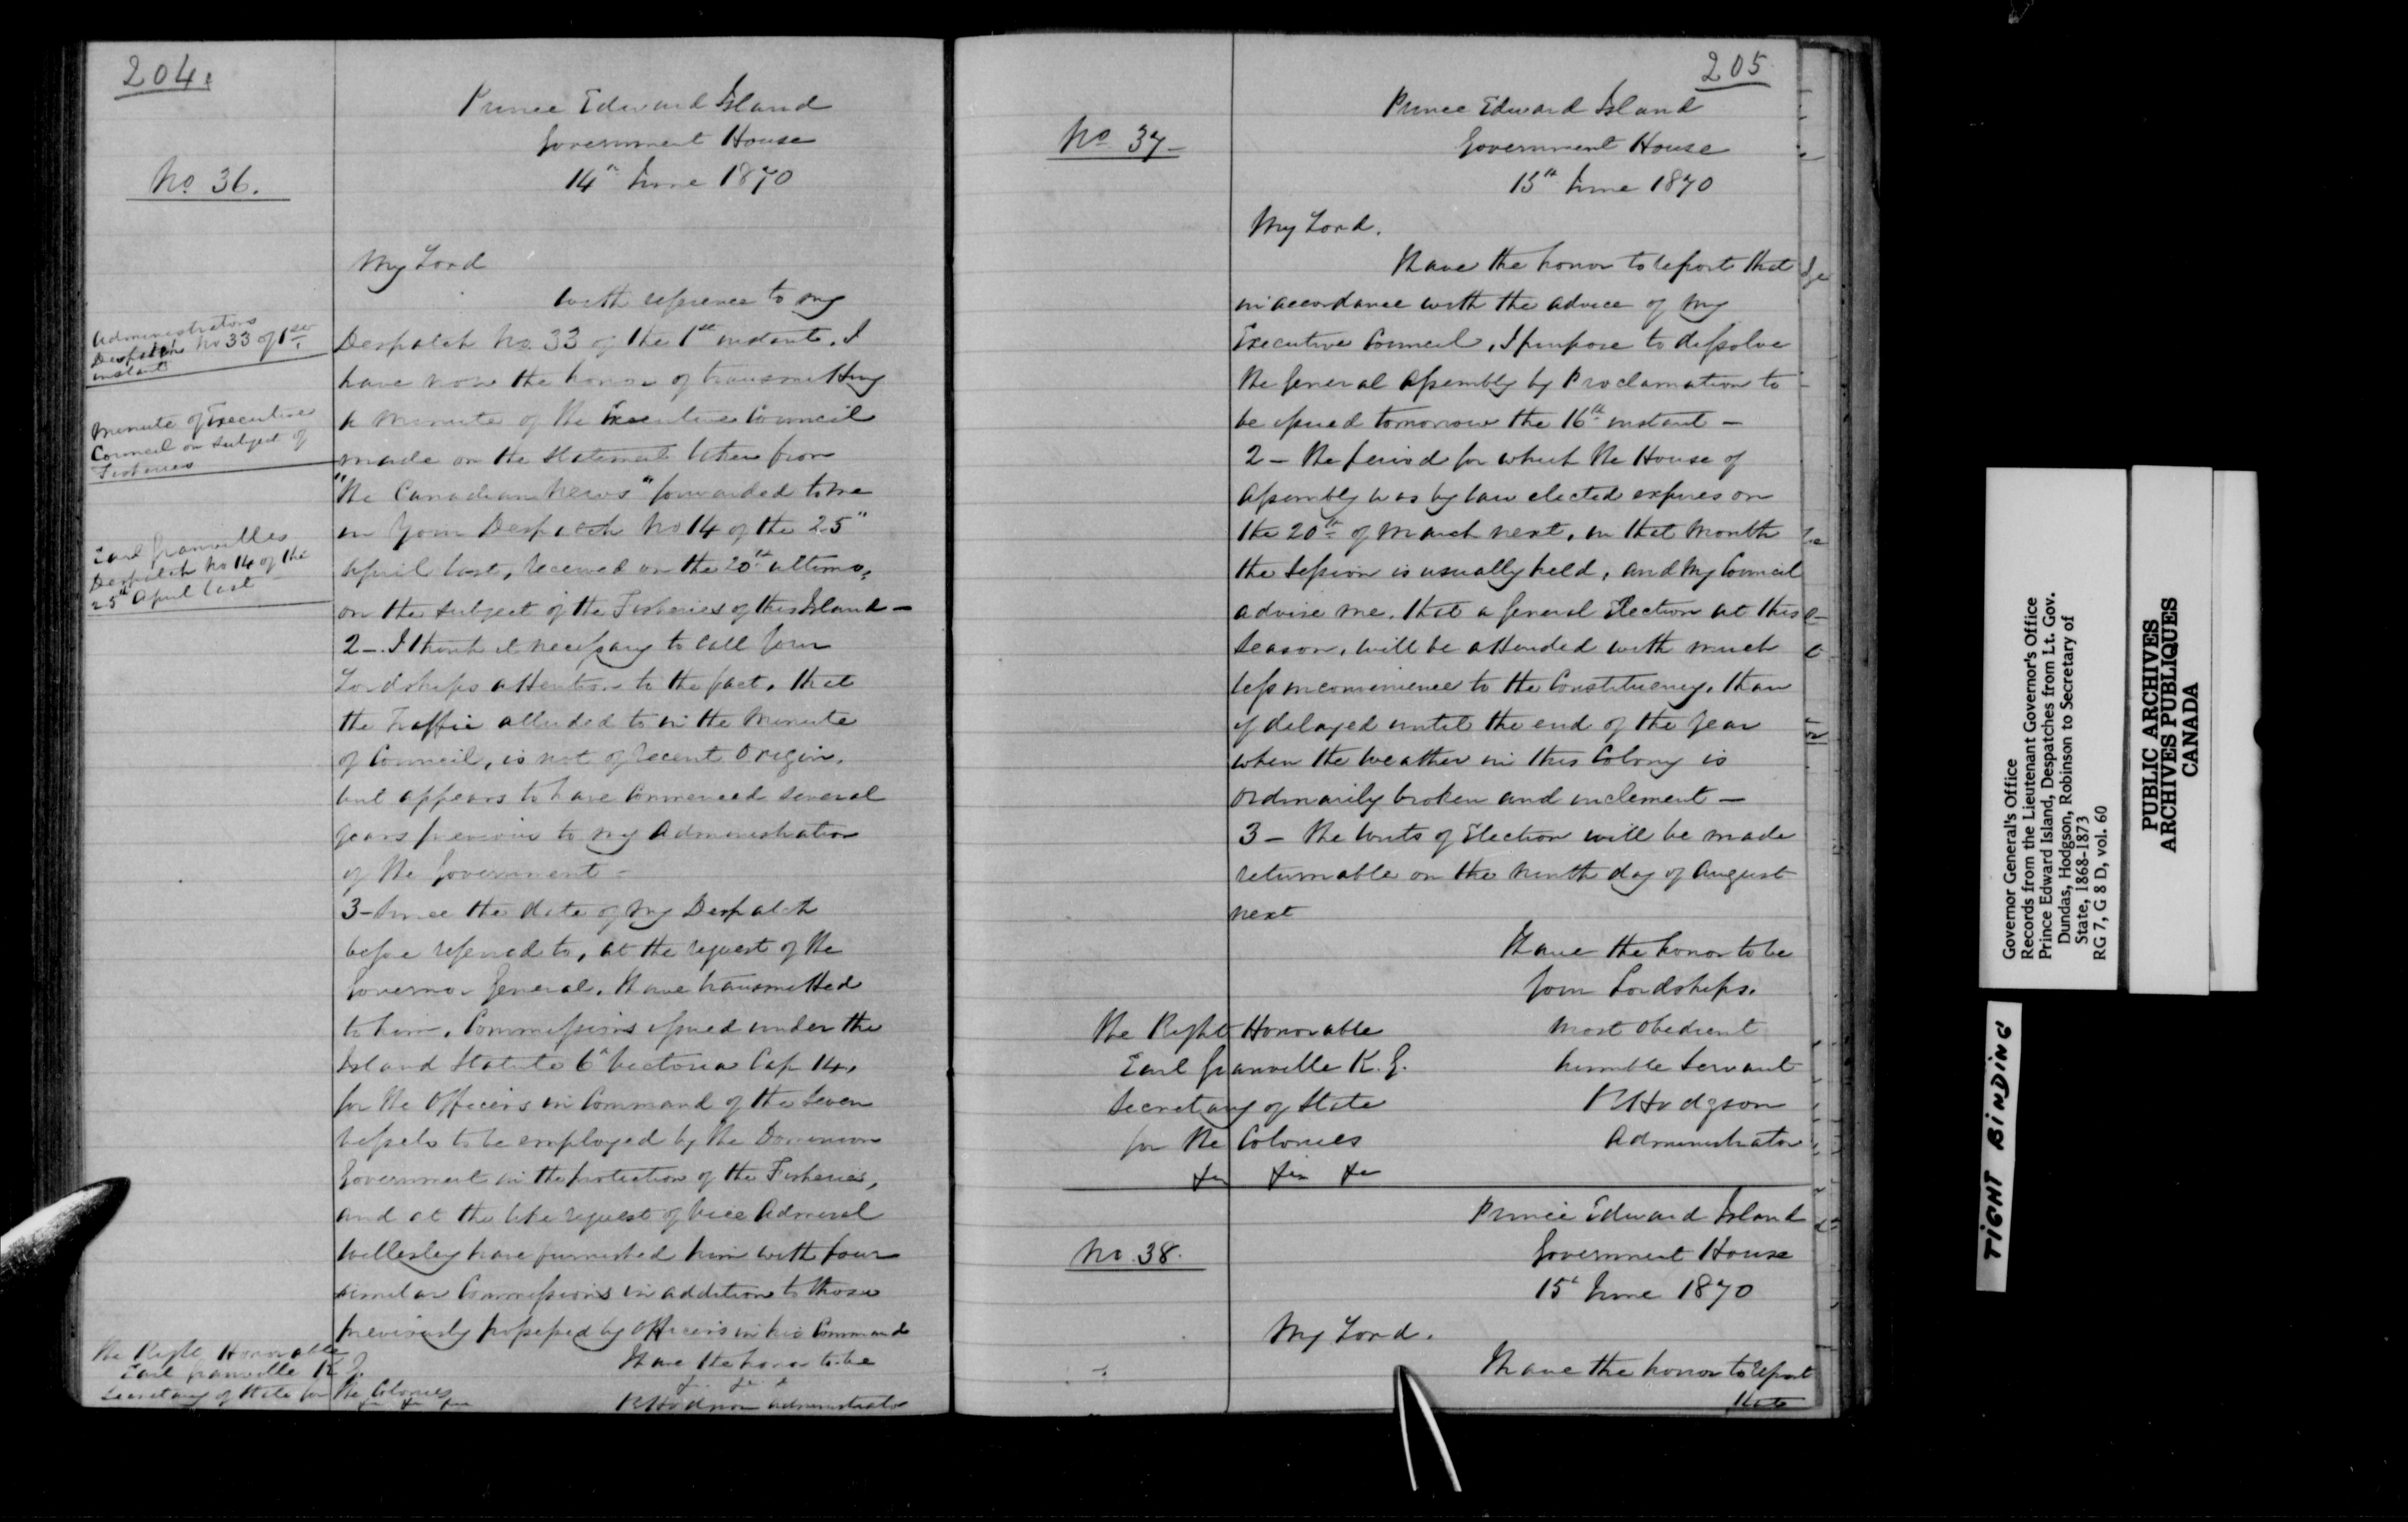 204.
No. 36.
Prince Edward Island
Government House
14th June 1870
My Lord
With reference to my
Administrators
Despatch No 33 of 1st
instant
Despatch No. 33 of the 1st instant, I
have now the honor of transmitting
Minute of Executive
Council on subject of
Fisheries
a Minute of the Executive Council
made on the Statement taken from
"The Canadian News" forwarded to me
Earl Granvilles
Despatch No 14 of the
25th April last
in Your Despatch No 14 of the 25"
April last, received on the 20th ultimo,
on the subject of the Fisheries of this Island—
2—. I think it necessary to call Your
Lordships attention to the fact, that
the Traffic alluded to in the Minute
of Council, is not of recent Origin,
but appears to have Commenced several
years previous to my Administration
of the Government—
3— Since the date of my Despatch
before referred to, at the request of the
Governor General, I have transmitted
to him, Commissions issued under the
Island Statute 6th Victoria Cap 14,
for the Officers in Command of the Seven
Vessels to be employed by the Dominion
Government in the protection of the Fisheries,
and at the like request of Vice Admiral
Wellesley have furnished him with four
similar Commissions in addition to those
previously possessed by Officers in his Command
The Right Honorable
Earl Granville K.G.
Secretary of State for the Colonies
&c &c &c
I have the honor to be
&c &c &c
R Hodgson Administrator
205
No 37—
Prince Edward Island
Government House
15th June 1870
My Lord.
I have the honor to report that
in accordance with the advice of my
Executive Council, I purpose to dissolve
the General Assembly by Proclamation to
be issued tomorrow the 16th instant—
2— The period for which the House of
Assembly was by law elected expires on
the 20th of March next, in that Month
the Session is usually held, and My Council
advise me, that a General Election at this
Season, will be attended with much
less inconvenience to the Constituency, than
if delayed until the end of the Year
when the Weather in this Colony is
ordinarily broken and inclement—
3— The Writs of Election will be made
returnable on the Ninth day of August
next
I have the honor to be
Your Lordships.
Most Obedient
humble Servant
R Hodgson
Administrator
The Right Honorable
Earl Granville K.G.
Secretary of State
for the Colonies
&c &c &c
No. 38.
Prince Edward Island
Government House
15th June 1870
My Lord.
I have the honor to report
that
Governor General's Office
Records from the Lieutenant Governor's Office
Prince Edward Island, Despatches from Lt. Gov.
Dundas, Hodgson, Robinson to Secretary of
State, 1868-1873
RG 7, G 8 D, vol. 60
PUBLIC ARCHIVES
ARCHIVES PUBLIQUES
CANADA
TIGHT BINDING